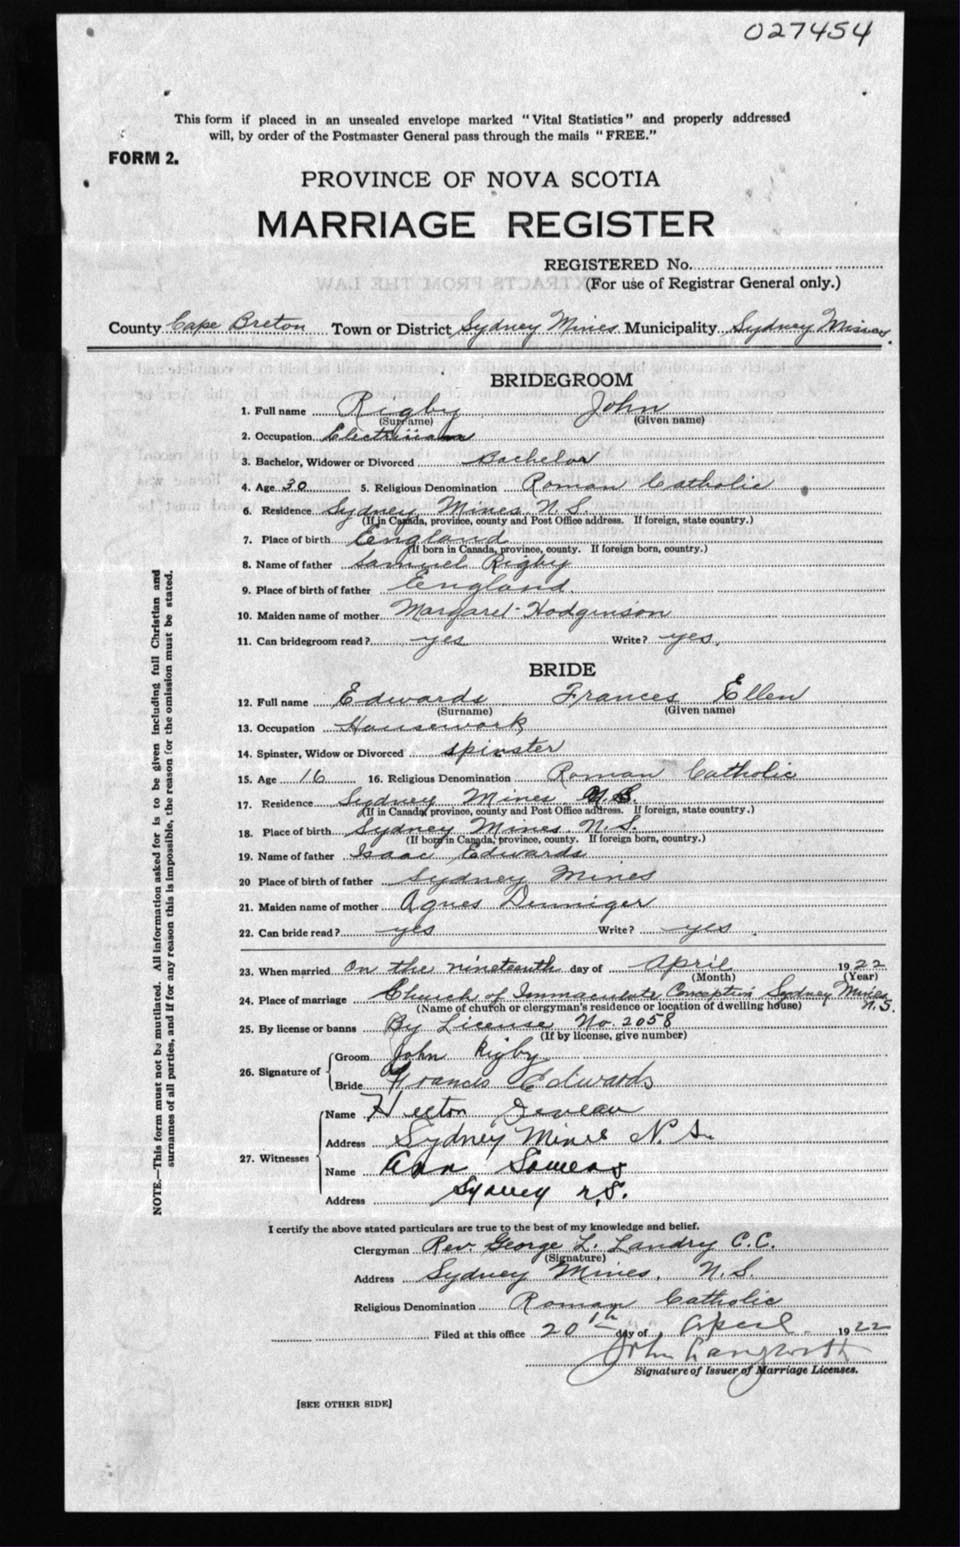 027454
This form if placed in an unsealed envelope marked "Vital Statistics" and properly addressed
will, by order of the Postmaster General pass through the mails "FREE."
FORM 2.
PROVINCE OF NOVA SCOTIA
MARRIAGE REGISTER
REGISTERED No.
(For use of Registrar General only.)
County Cape Breton Town or District Sydney Mines Municipality Sydney Mines
BRIDEGROOM
1. Full name Rigby John
(Surname) (Given name)
2. Occupation Electrician
3. Bachelor, Widower or Divorced Bachelor
4. Age 30 5. Religious Denomination Roman Catholic
6. Residence Sydney Mines N.S.
(If in Canada, province, county and Post Office address. If foreign, state country.)
7. Place of birth England
(If born in Canada, province, county. If foreign born, country.)
8. Name of father Samuel Rigby
9. Place of birth of father England
10. Maiden name of mother Margaret Hodginson
11. Can bridegroom read? yes Write? yes.
BRIDE
12. Full name Edwards Frances Ellen
(Surname) (Given name)
13. Occupation Housework
14. Spinster, Widow or Divorced spinster
15. Age 16 16. Religious Denomination Roman Catholic
17. Residence Sydney Mines N.S.
(If in Canada, province, county and Post Office address. If foreign, state country.)
18. Place of birth Sydney Mines N.S.
(If born in Canada, province, county. If foreign born, country.)
19. Name of father Isaac Edwards
20 Place of birth of father Sydney Mines
21. Maiden name of mother Agnes
22. Can bride read? yes Write? yes.
23. When married on the nineteenth day of April 1922
(Month) (Year)
24. Place of marriage Church of Immaculate Conception Sydney Mines
(Name of church or clergyman's residence or location of dwelling house) N.S.
25. By license or banns By License No. 2058
(If by license, give number)
26. Signature of
Groom John Rigby
Bride Francis Edwards
27. Witnesses
Name Deveau
Address Sydney Mines N.S.
Name Ann Somers
Address Sydney N.S.
I certify the above stated particulars are true to the best of my knowledge and belief.
Clergyman Rev. George L. Landry C.C.
(Signature)
Address Sydney Mines, N.S.
Religious Denomination Roman Catholic
Filed at this office 20th day of April 1922
John Langworth
Signature of Issuer of Marriage Licenses.
[SEE OTHER SIDE]
NOTE.—This form must not be mutilated. All information asked for is to be given including full Christian and
surnames of all parties, and if for any reason this is impossible, the reason for the omission must be stated.